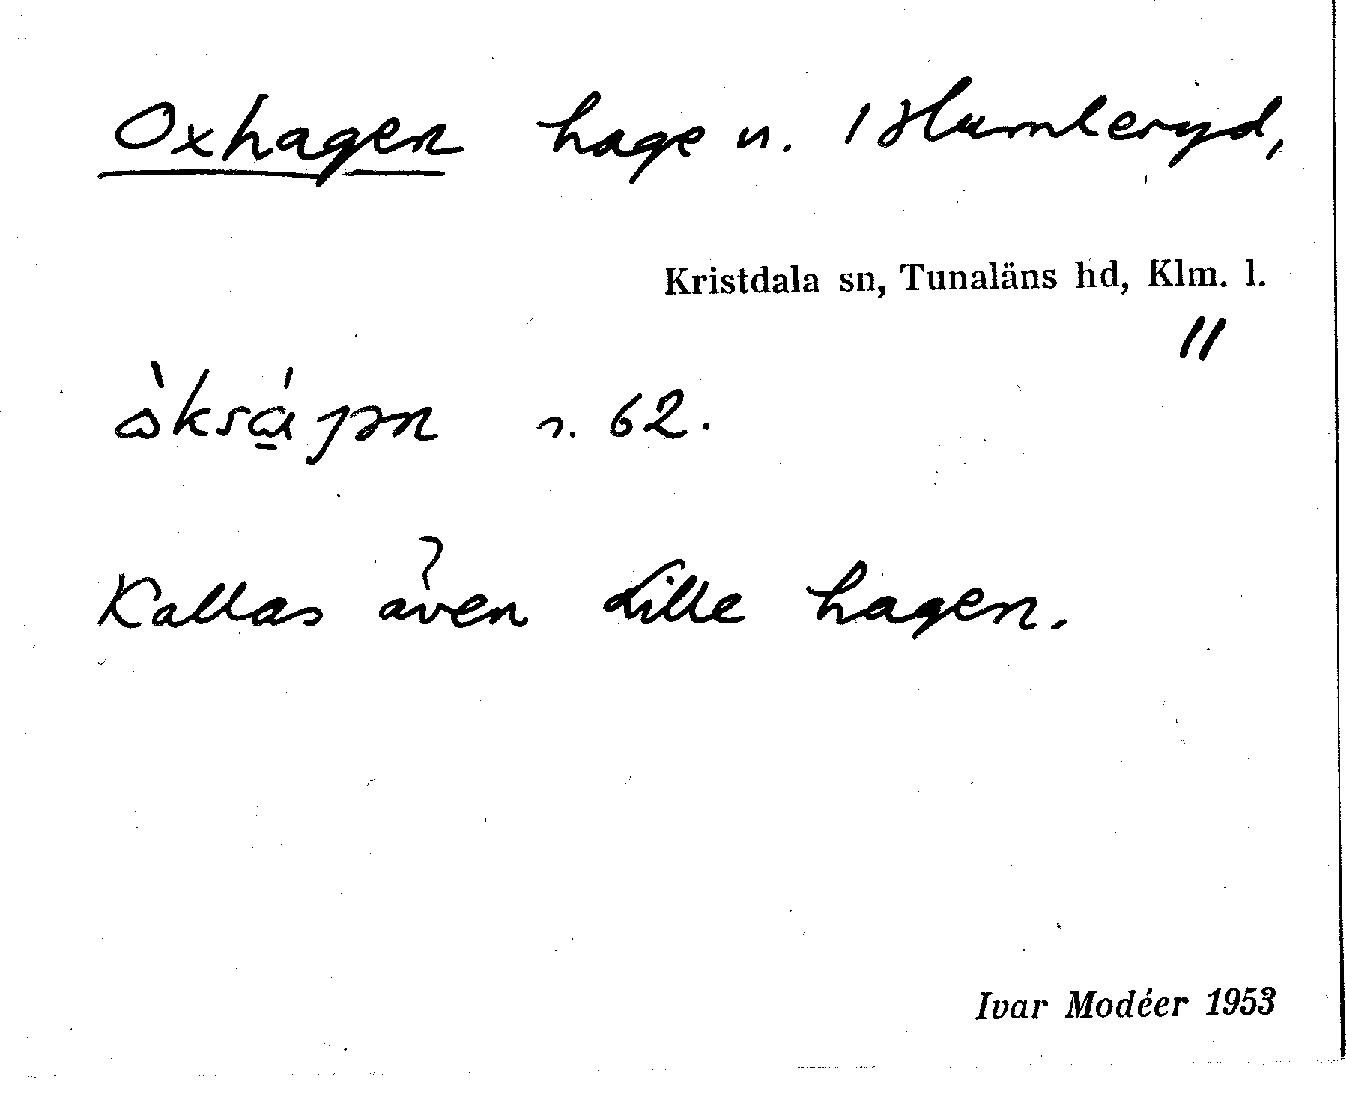 Oxhagen hage u. 1 Humleryd,
Kristdala sn, Tunaläns hd, Klm. l.
"
n. 62.
Kallas även Lille hagen.
Ivar Modéer 1953